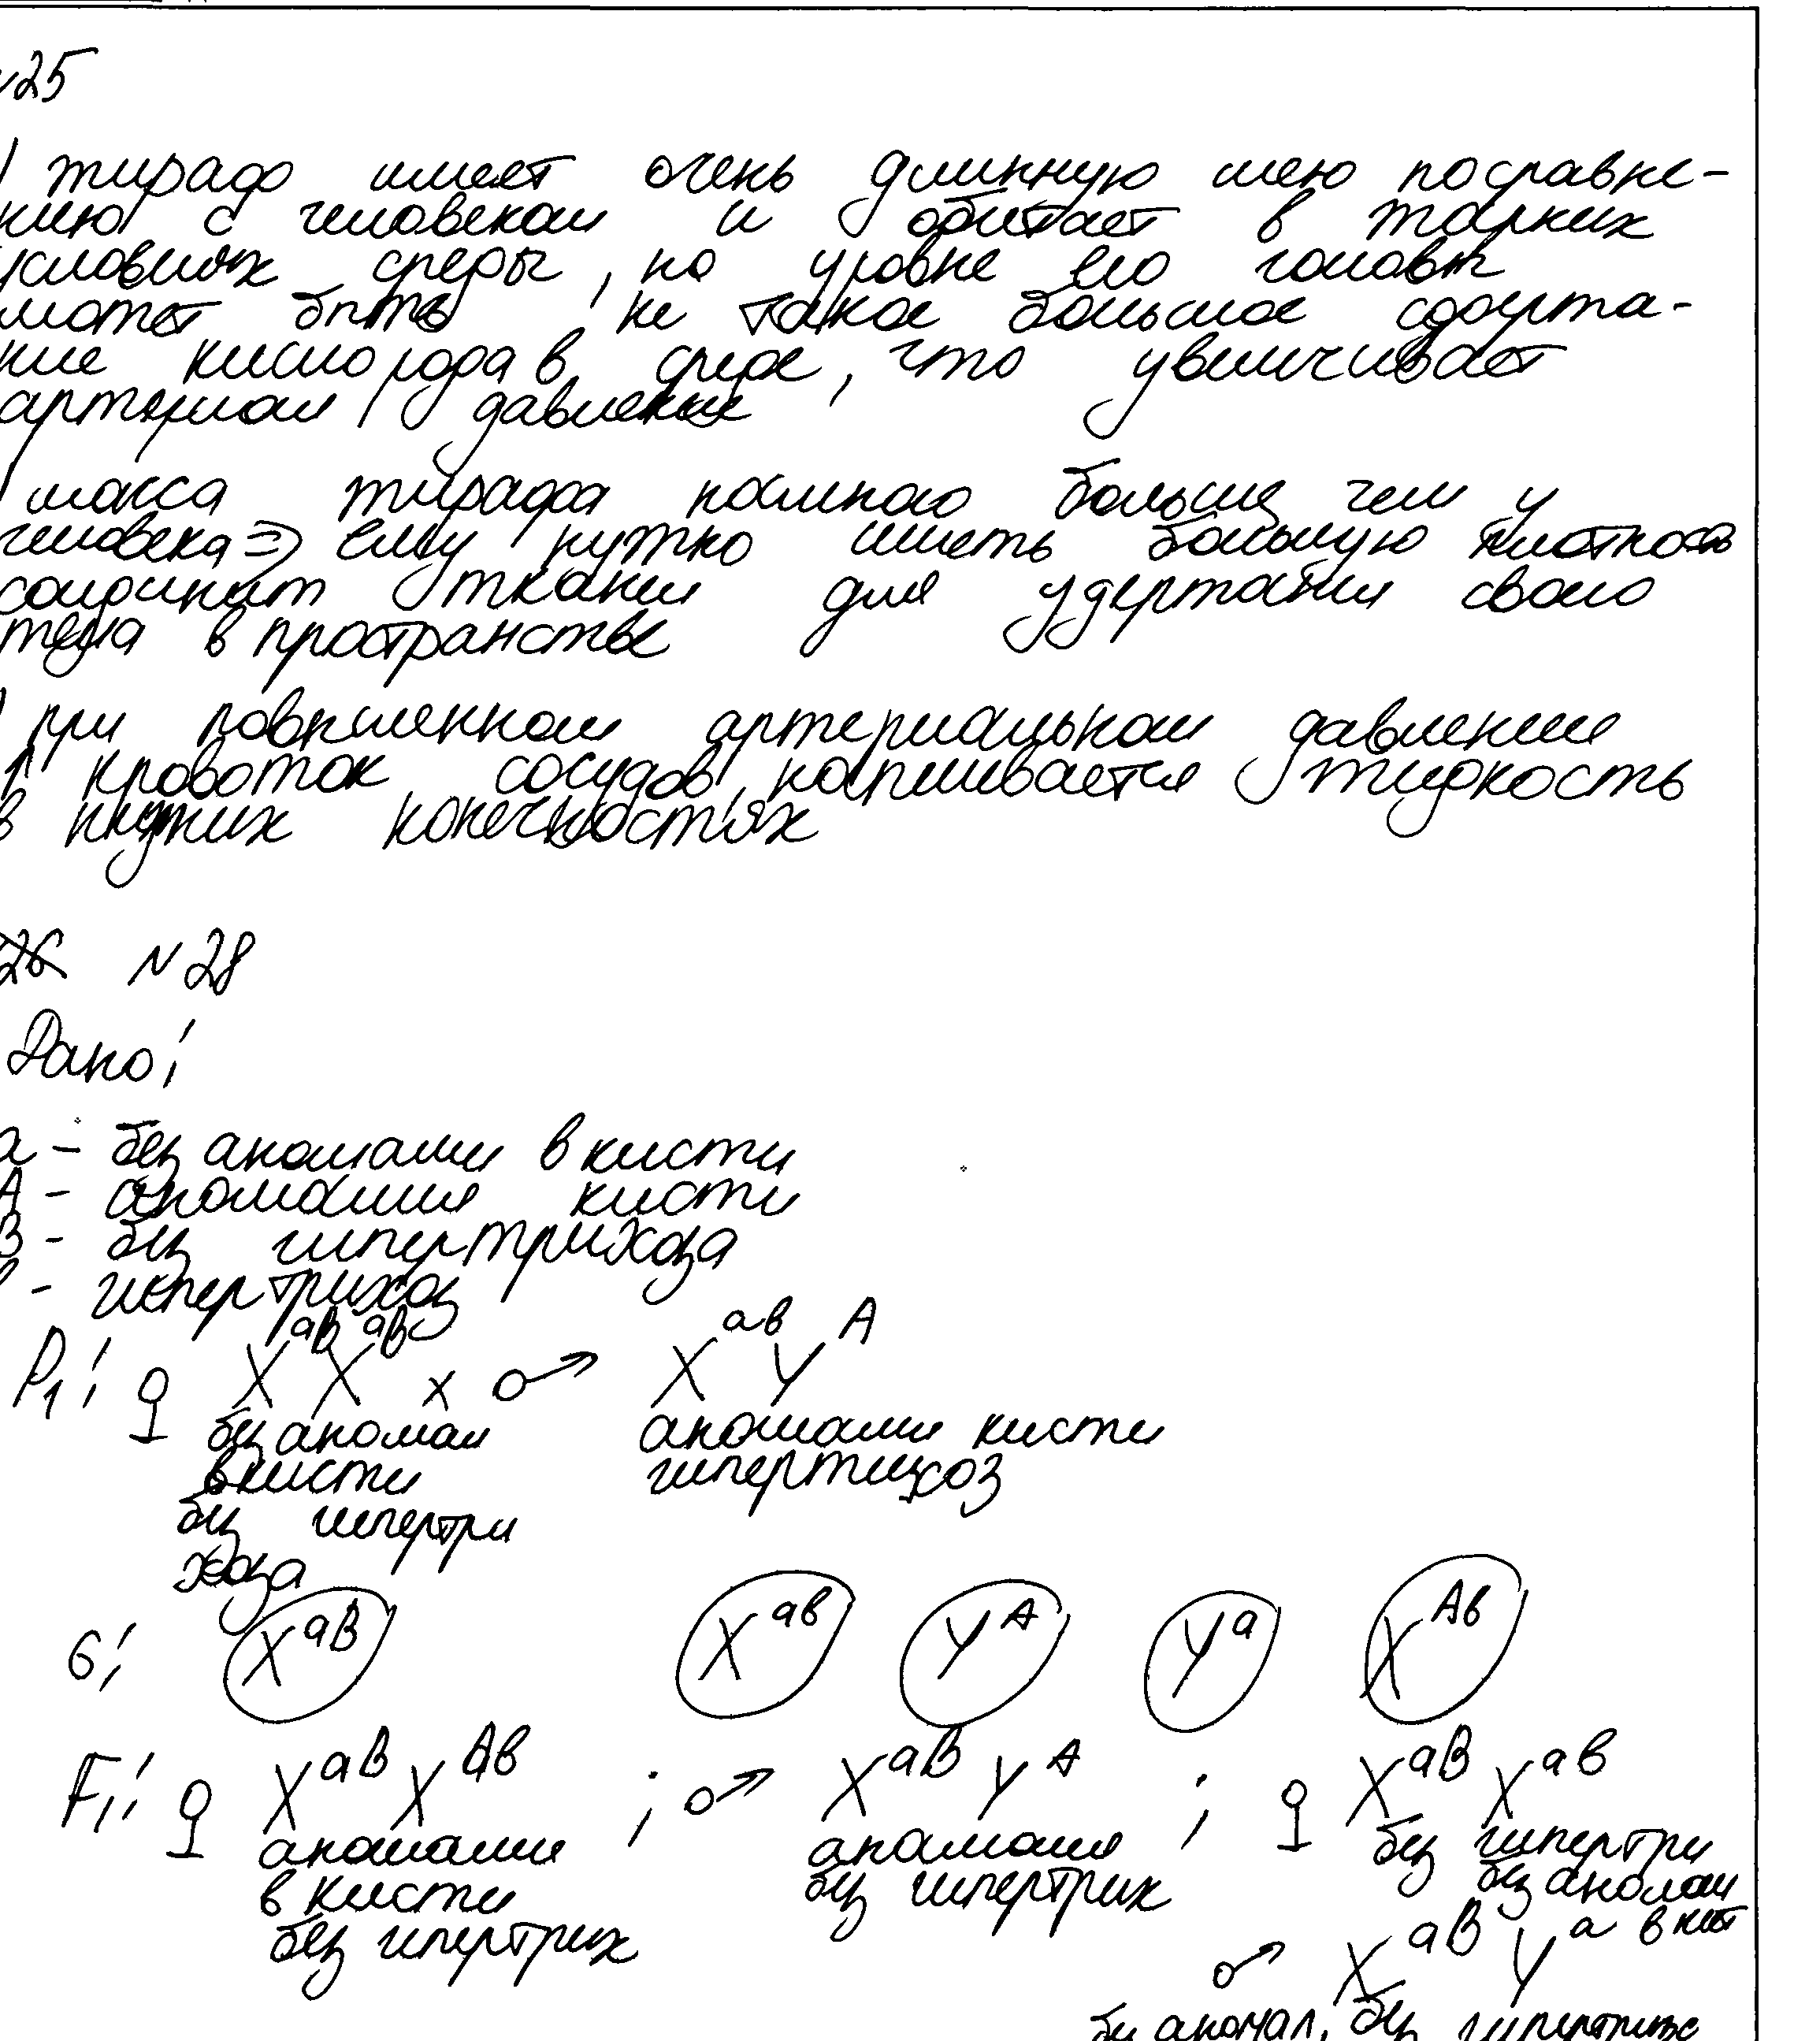 №25
) жираф имеет очень длинную шею посравне-
нию с человеком и обитает в жарких
условиях среды, на уровне его головы
может быть не такое большое содержа-
ние кислорода в среде, что увеличивает
артериал давление
) масса жирафа намного больше чем у
человека => ему нужно иметь большую плотность
соединит ткани для удержания своего
тела в пространстве
) при повышенном артериальном давлении
↑ кровоток сосудов, напливается жидкость
в нижних конечностях
26 N28
Дано:
а - без аномалии в кисти
А - аномалия кисти
В - без гипертрихоза
в - гипертрихоз
P1: ♀ X^aB X^aB x ♂ X^aв Y^A
без аномал аномалии кисти
в кисти гипертихоз
без гипертри
хоза
G: X^aB X^aв Y^A Y^a X^Aв
F1: ♀ X^aB X^Aв ; ♂ X^aB Y^A ; ♀ X^aB X^aв
аномалии аномалия без гипертри
в кисти без гипертрих без аномал
без гипертрих в кист
♂ X^aB Y^a
без аномал, без гипертрихо